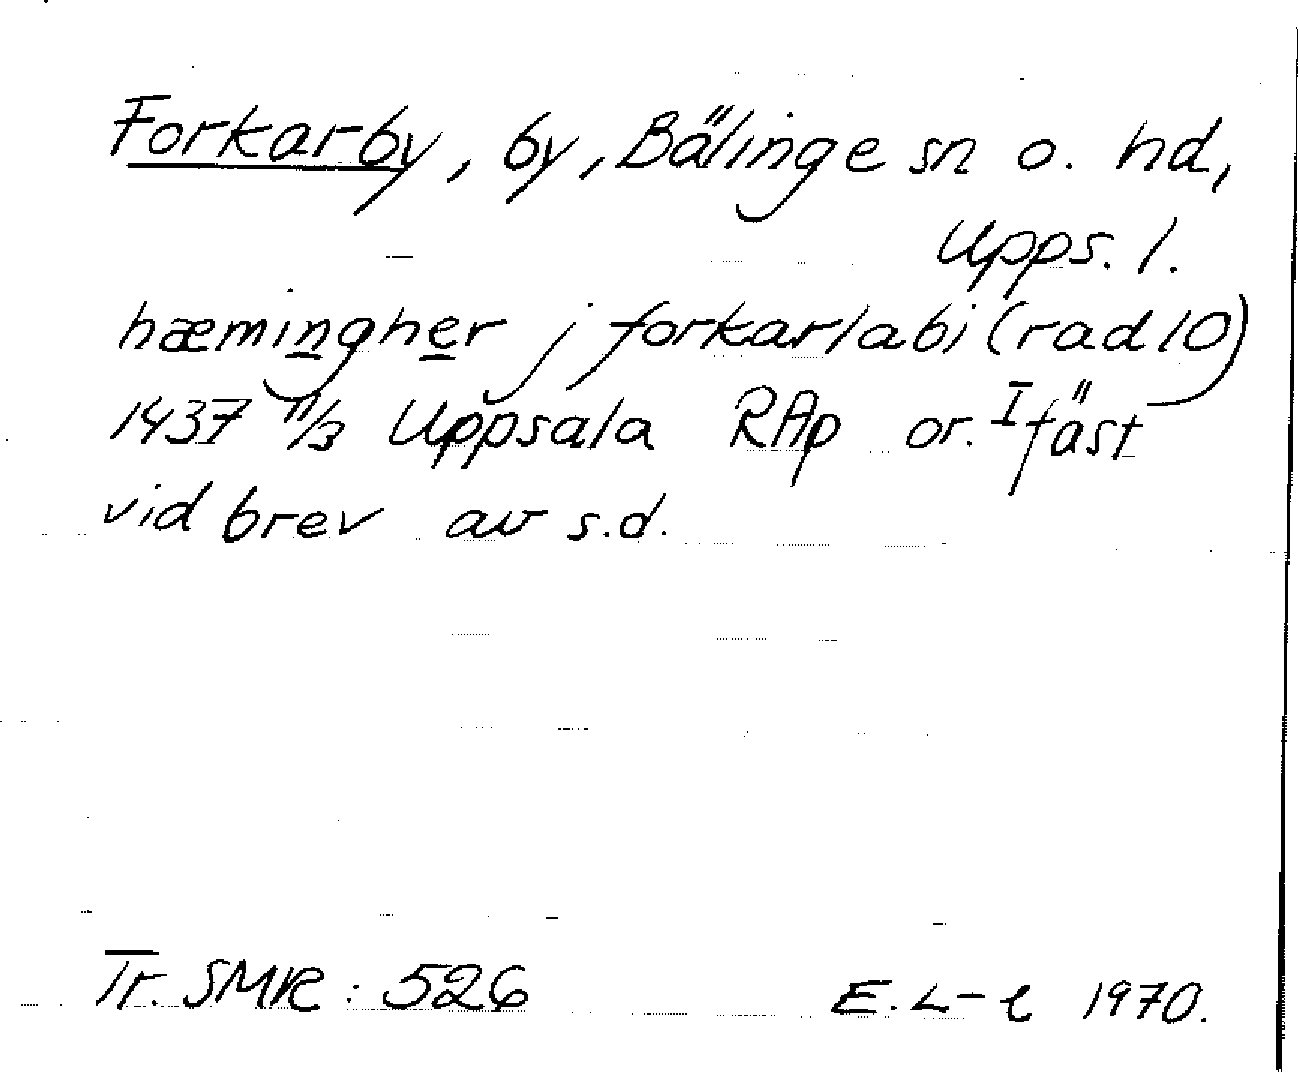 Forkarby, by, Bälinge sn o. hd,
Upps. l.
hæmingher j forkarlabi (rad 10)
1437 11/3 Uppsala RAp or. Ifäst
vid brev av s.d.
Tr. SMR: 526
E. L-l 1970.